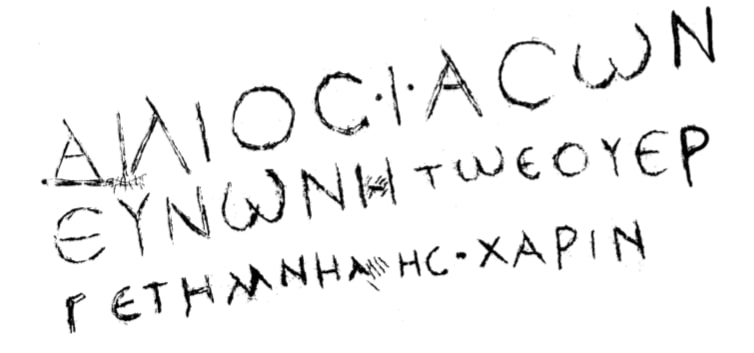 ΑΙΛΙΟϹ·Ι·ΑϹωΝ
ΕΥΝωΝΗ ΤωΕΟΥΕΡ
ΓΕΤΗΜΝΗΜΗϹ·ΧΑΡΙΝ